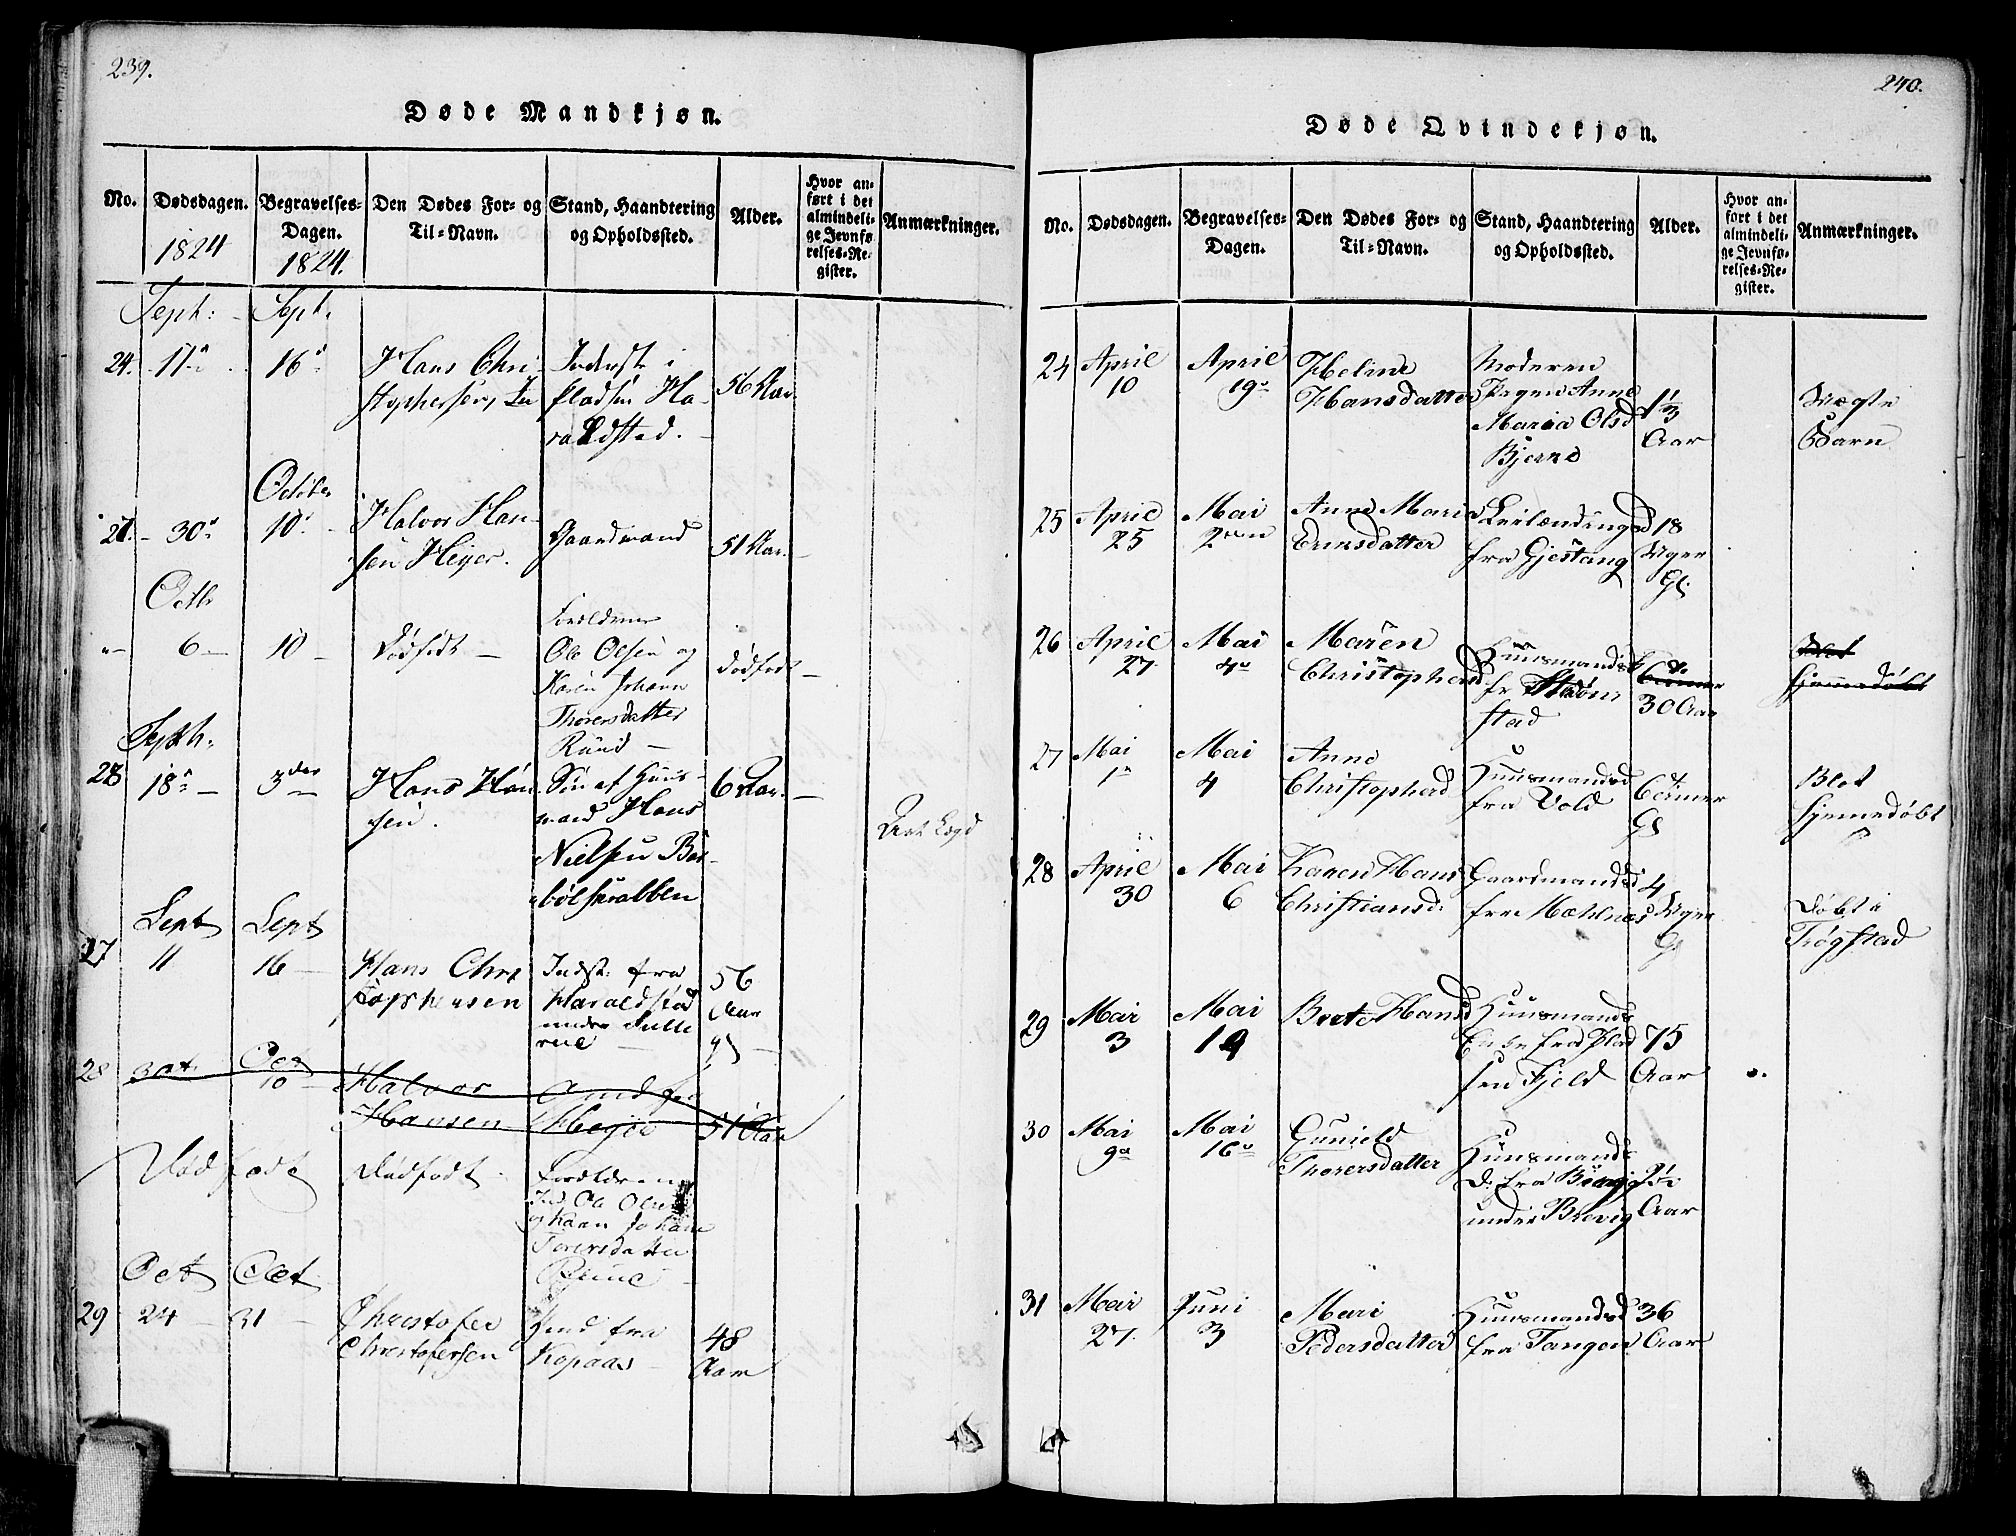 239.
Døde Mandkjøn.
No.
Dødsdagen.
1824
Begravelses-
Dagen.
1824.
Den Dødes For- og
Til-Navn.
Stand, Haandtering
og Opholdssted.
Alder.
Hvor an-
ført i det
almindeli-
ge Jevnfø-
relses-Re-
gister.
Anmærkninger.
Septr: Septr.
24. 17
16
Hans Chri-
stophersen,
Inderst i
pladsen Ha-
raldsted.
56 Aar
October
30
10
Halvor Han-
sen Heyer.
Gaardmand
51 Aar.
Octb
6
10
Dødfødt
Forældrene
Ole Olsen og
Karen Johanne
Thorersdatter
Rund
dødfødt
Septr.
28
18
3die
Hans Han-
sen.
Søn af Huus-
mand Hans
Nielsen Bør-
bølskrabben
6 Aar.
Sept Sept
27
11
16
Hans Chri
stophersen
Indst: fra
Haraldstad
under Fulle
rul
56
Aar
gl
28
30t
Oct
10
Halvor
Hansen
Gmd fra
Heyer
51 Aar
Død fødte
Dødfødt
Forældrene
Ind. Ole Olsen
og Karn Johane
Torersdatter
Oct Oct
29
24
31
Christofer
Christofersen
Gmd fra
Kopaas
48
Aar
240.
Døde Qvindekjøn.
No.
Dødsdagen.
Begravelses-
Dagen.
Den Dødes For- og
Til-Navn.
Stand, Haandtering
og Opholdssted.
Alder.
Hvor an-
ført i det
almindeli-
ge Jevnfø-
relses-Re-
gister.
Anmærkninger.
24
April
10
April
19
Heline
Hansdatter
Moderen
Pigen Anne
Maria Olsd
Bjerne
1 1/3
Aar
Uægte
Barn
25
April
25
Mai
2den
Anne Maria
Ernsdatter
Leilændingsd
fra Gjestang
18
Uger
Gl.
26
April
27
Mai
4
Maren
Christophersd
Huusmandsk
fr Strøm
stad
30 Aar
Blot
hjemmedøbt
27
Mai
1
Mai
4
Anne
Christophersd
Huusmandsd
fra Vold
6 timer
Gl
Blot
hjemmedøbt
28
April
30
Mai
6
Karen Hans
Christiansd:
Gaardmandsd
fra Mæhlnæs
4
Uger
Gl
Døbt i
Trøgstad
29
Mai
3
Mai
19
Berte Hansd
Huusmands
Enke fra Plad
sen Fjeld
75
Aar
30
Mai
9
Mai
16
Gunield
Thorersdatter
Huusmands
D: fra
under Brevig
Aar
31
Mai
27
Juni
3
Mari
Pedersdatter
Huusmandsd
fra Tangen
36
Aar